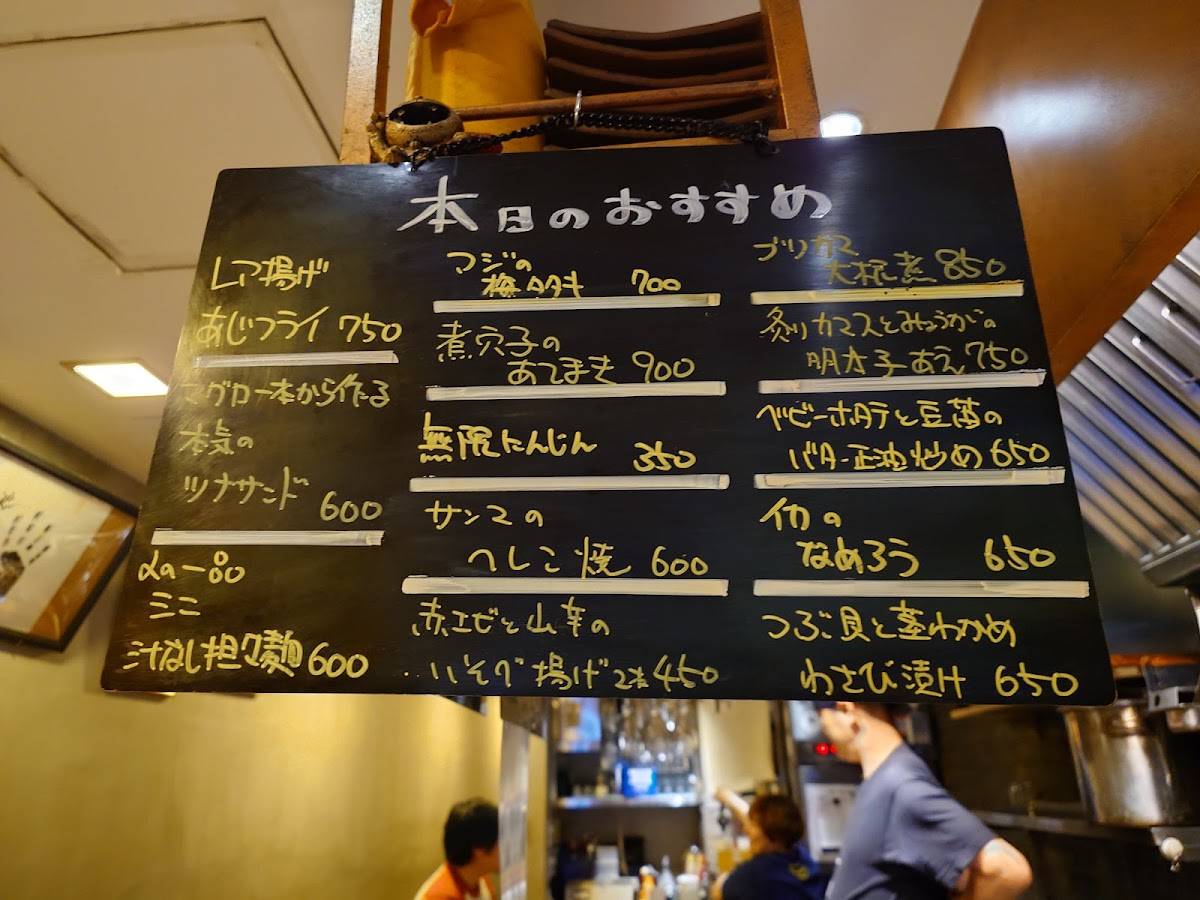 本日のおすすめ
レア揚げ
あじフライ 750
マグロ一本から作る
本気の
ツナサンド 600
〆の一品
ミニ
汁なし担々麺 600
アジの
梅タタキ 700
煮穴子の
あてまき 900
無限にんじん 350
サンマの
へしこ焼 600
赤エビと山芋の
いそべ揚げ 2本 450
ブリカマ
大根煮 850
炙りカマスとみょうがの
明太子あえ 750
ベビーホタテと豆苗の
バター正油炒め 650
イカの
なめろう 650
つぶ貝と茎わかめ
わさび漬け 650